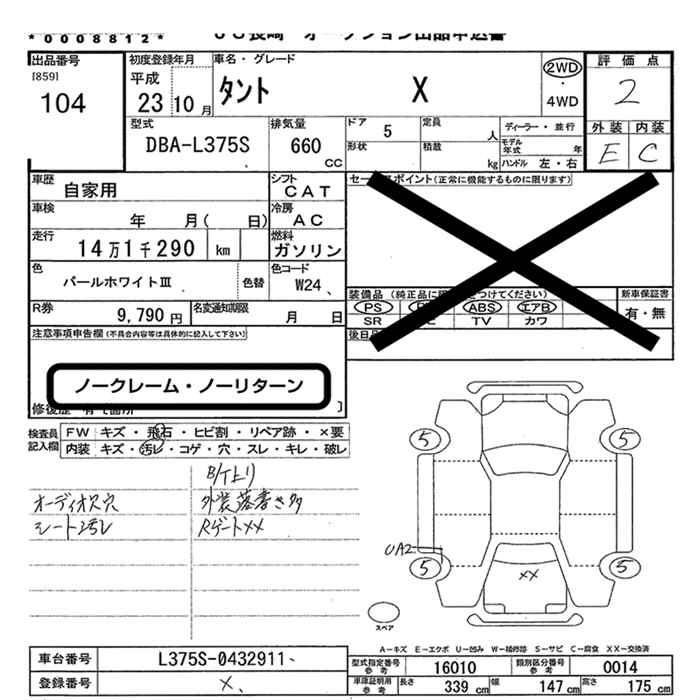 *0008812* JU長崎 オークション出品申込書
出品番号 初度登録年月 車名・グレード 評価点
[859] 平成 2WD
104 23 10月 タント X ・ 2
4WD
型式 排気量 ドア 5 定員 人 ディーラー・並行 外装 内装
DBA-L375S 660 CC 形状 積載 kg モデル年式 年 E C
ハンドル 左・右
車歴 自家用 シフト CAT セールスポイント(正常に機能するものに限ります)
車検 年 月( 日) 冷房 AC
走行 14万1千290 km 燃料 ガソリン
色 パールホワイトⅢ 色替 色コード W24、
装備品(純正品に限 つけてください) 新車保証書
R券 9,790円 名変通知期限 月 日 PS ABS エアB 有・無
SR TV カワ
注意事項申告欄(不具合内容等は具体的に記入して下さい) 後日
ノークレーム・ノーリターン
修復歴 有( 箇所 )
検査員 FW キズ・飛石・ヒビ割・リペア跡・×要
記入欄 内装 キズ・汚レ・コゲ・穴・スレ・キレ・破レ
B/Tヒリ
オーディオス穴 外装落書き多
シート汚レ Rゲート××
5 5
UA2
5 5
××
スペア
A-キズ E-エクボ U-凹み W-補修跡 S-サビ C-腐食 XX-交換済
車台番号 L375S-0432911、 型式指定番号 参考 16010 類別区分番号 参考 0014
登録番号 ×、 車庫証明用 参考 長さ 339cm 幅 147cm 高さ 175cm